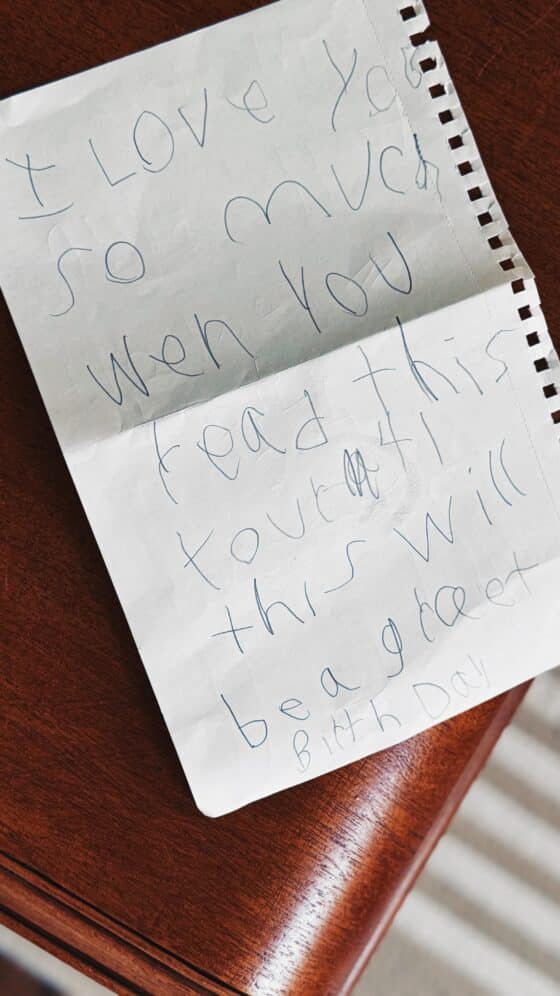 I LOVE YOU
so much
wen YOU
read this
your 41
this will
be a greet
Birth Day